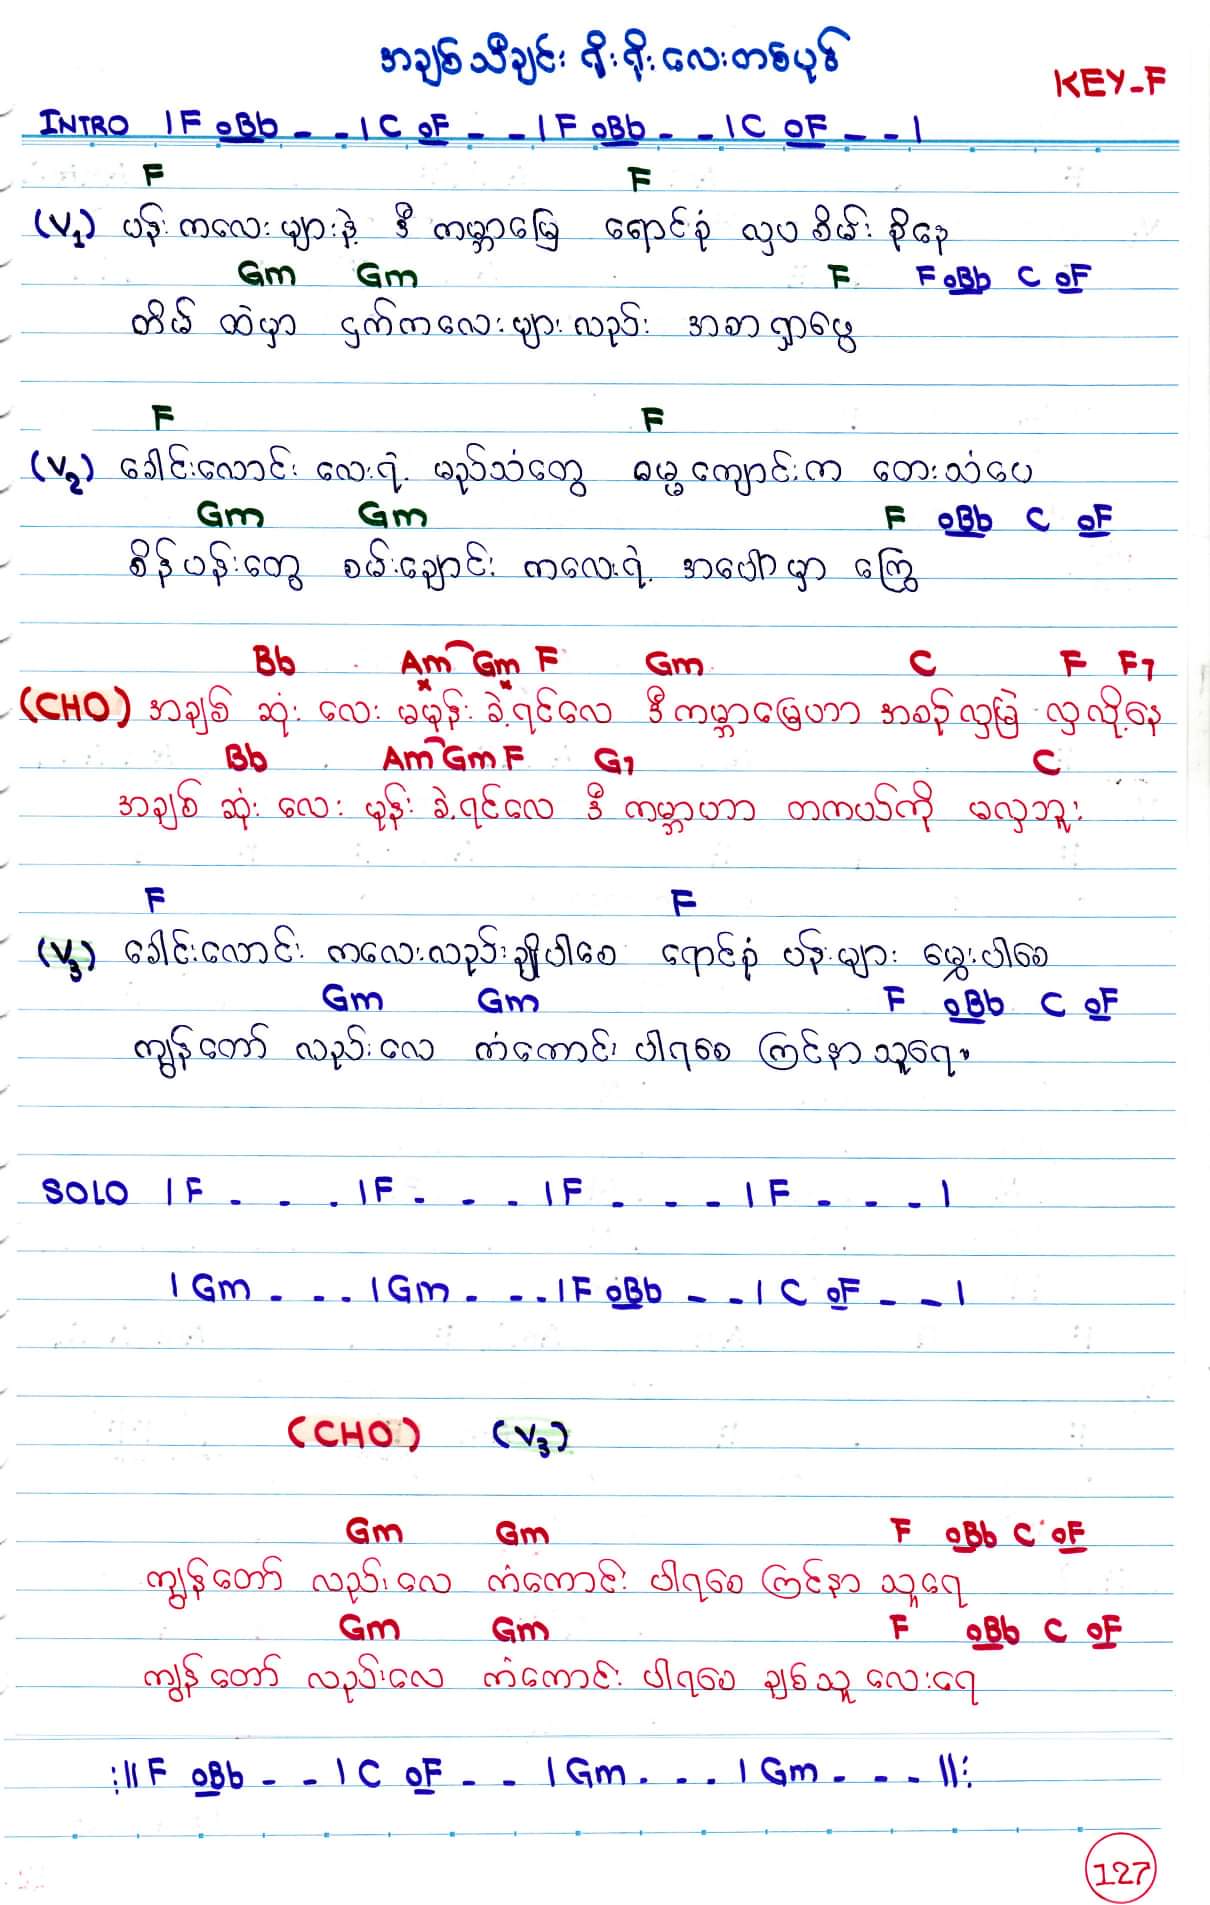 အချစ်သီချင်း ရိုးရိုးလေးတစ်ပုဒ်
KEY-F
INTRO |F oBb - - |C oF - - |F oBb - - |C oF - - |
F F
(V1) ပန်းကလေးများနဲ့ ဒီ ကမ္ဘာမြေ ရောင်စုံ လှပ စိမ်းစိုနေ
Gm Gm F F oBb C oF
တိမ် ထဲမှာ ငှက်ကလေးများလည်း အစာရှာဖွေ
F F
(V2) ခေါင်းလောင်း လေးရဲ့ မြည်သံတွေ ဓမ္မကျောင်းက တေးသံပေ
Gm Gm F oBb C oF
စိန်ပန်းတွေ စမ်းချောင်း ကလေးရဲ့ အပေါ်မှာ ကြွေ
Bb Am Gm F Gm C F F7
(CHO) အချစ် ဆုံး လေး မမုန်းခဲ့ရင်လေ ဒီကမ္ဘာမြေဟာ အစဉ်လှမြဲ လှလို့နေ
Bb Am Gm F G7 C
အချစ် ဆုံး လေး မုန်းခဲ့ရင်လေ ဒီ ကမ္ဘာဟာ တကယ်ကို မလှဘူး
F F
(V3) ခေါင်းလောင်း ကလေးလည်းချိုပါစေ ရောင်စုံ ပန်းများ မွှေးပါစေ
Gm Gm F oBb C oF
ကျွန်တော် လည်းလေ ကံကောင်း ပါရစေ ကြင်နာသူရေ။
SOLO |F - - - |F - - - |F - - - |F - - - |
|Gm - - - |Gm - - - |F oBb - - |C oF - - |
(CHO) (V3)
Gm Gm F oBb C oF
ကျွန်တော် လည်းလေ ကံကောင်း ပါရစေ ကြင်နာ သူရေ
Gm Gm F oBb C oF
ကျွန်တော် လည်းလေ ကံကောင်း ပါရစေ ချစ်သူ လေးရေ
:||F oBb - - |C oF - - |Gm - - - |Gm - - - ||:
127